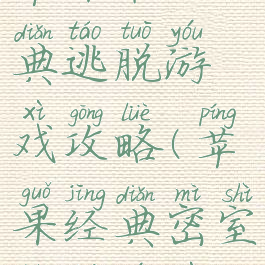 diǎn táo tuō yóu
典逃脱游
xì gōng lüè píng
戏攻略(苹
guǒ jīng diǎn mì shì
果经典密室